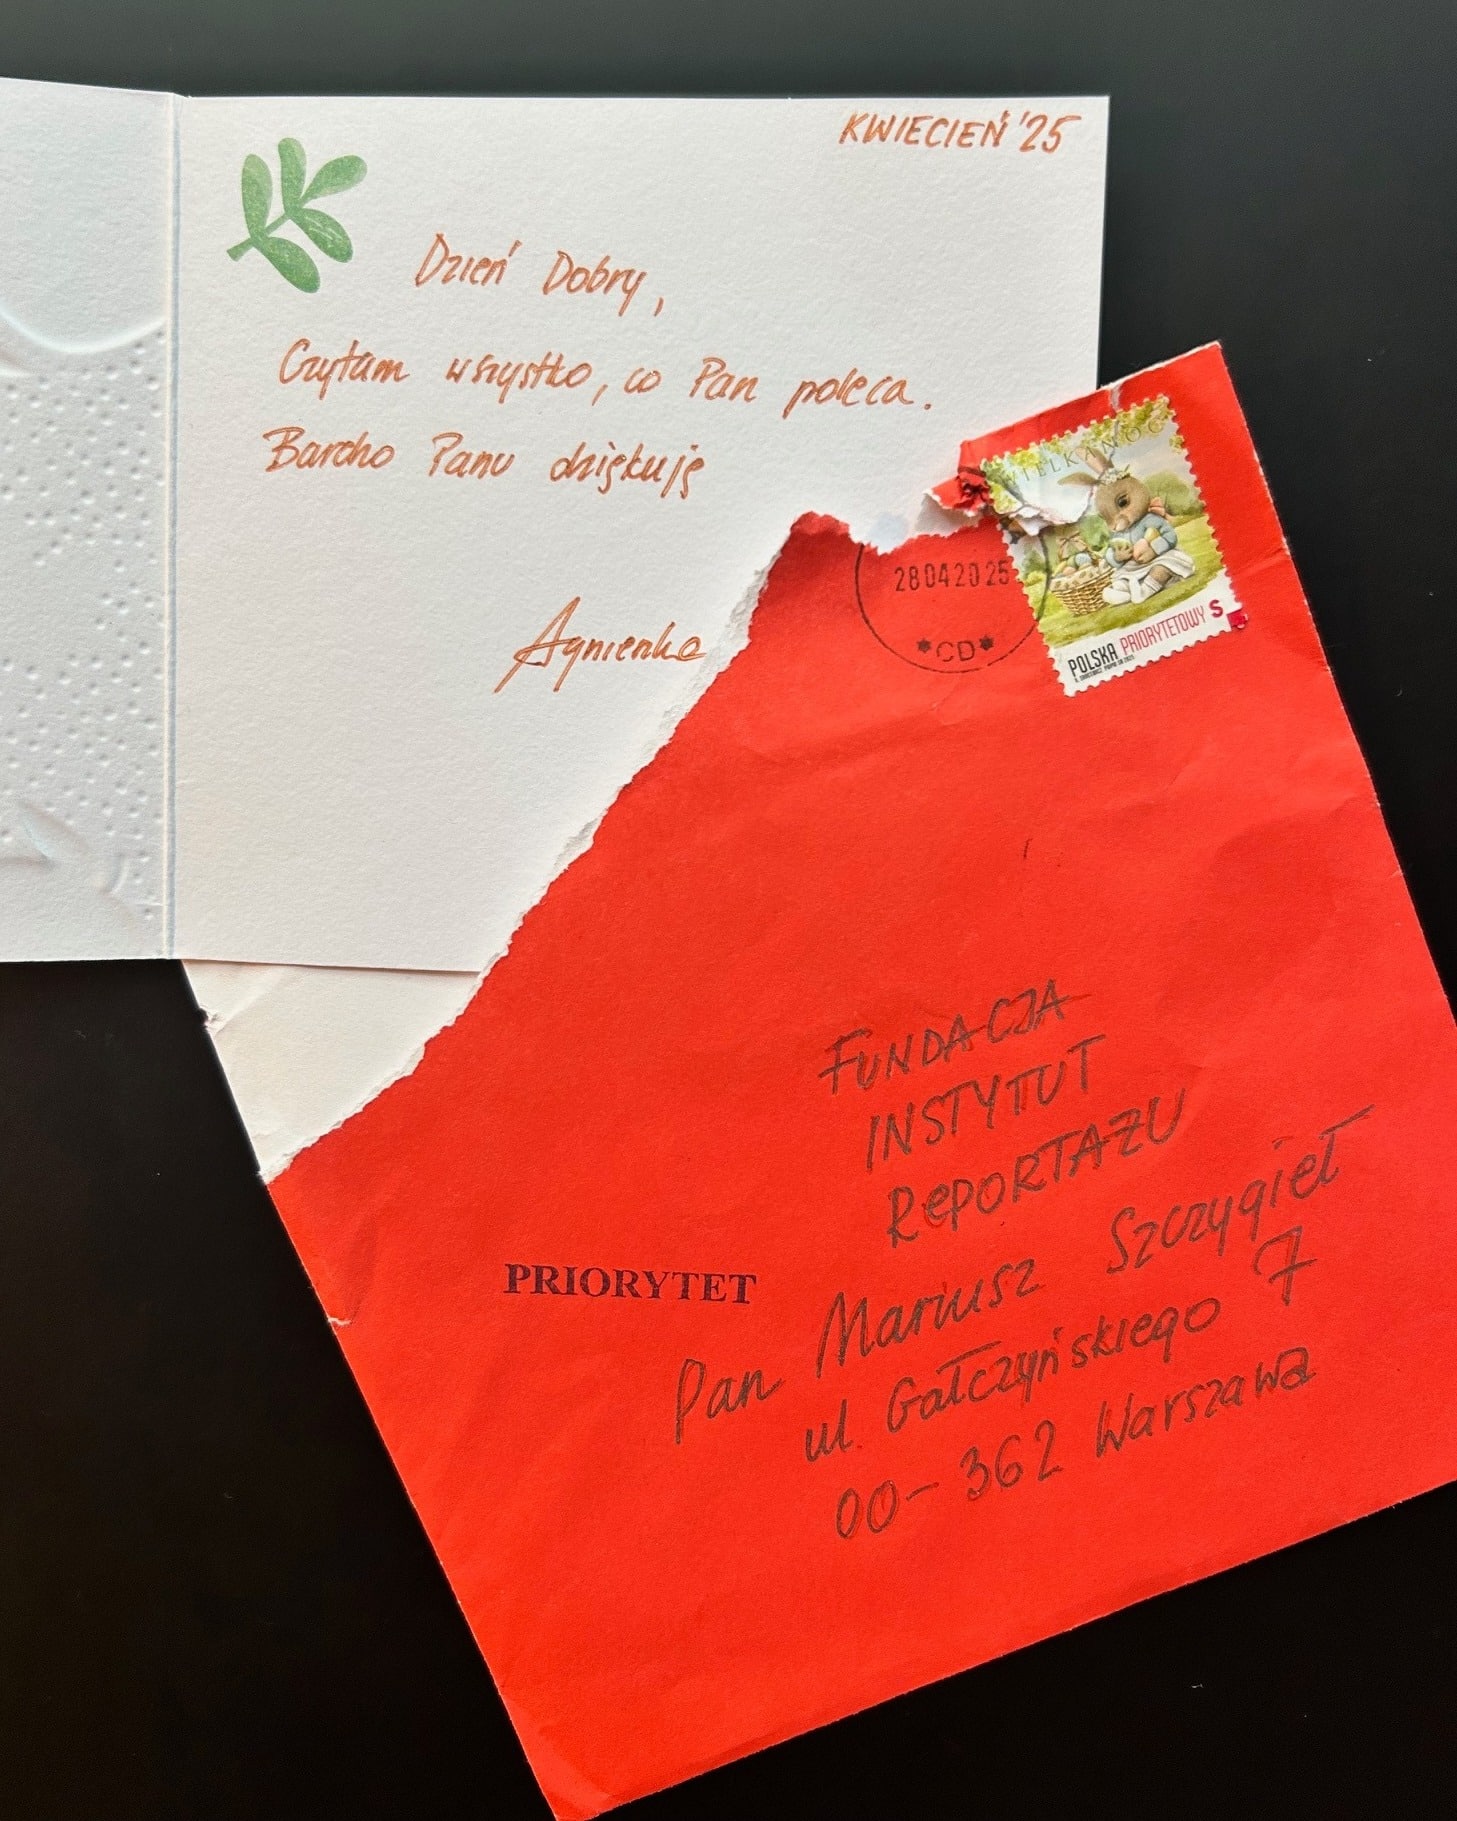 KWIECIEŃ '25
Dzień Dobry,
Czytam wszystko, co Pan poleca.
Bardzo Panu dziękuję
Agnieszka
WIELKANOC
28 04 20 25
*CD*
POLSKA PRIORYTETOWY S
FUNDACJA
INSTYTUT
REPORTAŻU
PRIORYTET
Pan Mariusz Szczygieł
ul. Gałczyńskiego 7
00-362 Warszawa